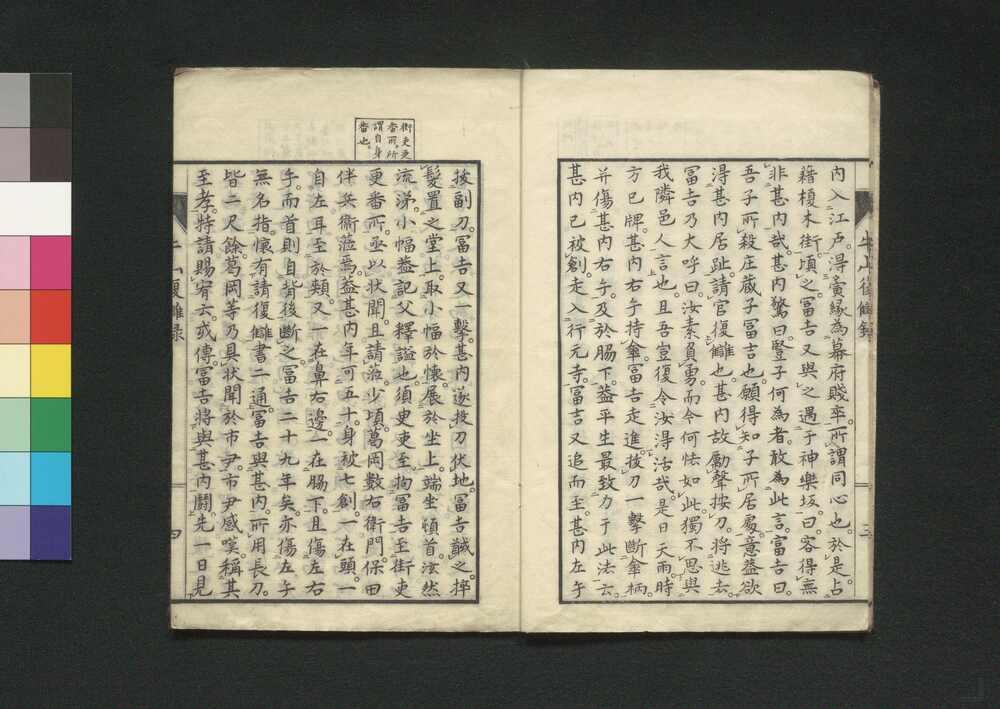 内入江戸。得夤縁為幕府賤卒。所謂同心也。於是占
籍榎木街。頃之冨吉又與之遇于神樂坂。曰。客得無
非甚内哉。甚内驁曰。豎子何為者。敢為此言。富吉曰。
吾子所殺庄蔵子冨吉也。願得知子所居處。意蓋欲
得甚内居趾。請官復讎也。甚内故勵聲按刀。将逃去。
冨吉乃大呼曰。汝素負勇。而今何怯如此。獨不思與
我隣邑人言也。且吾豈復令汝得活哉。是日天雨時
方已牌。甚内右手持傘。冨吉走進。拔刀一擊斷傘柄。
并傷甚内右手。及於腸下。蓋平生最致力于此法云。
甚内已被創走入行元寺。冨吉又追而至。甚内左手
拔副刀。冨吉又一擊。甚内遂投刀伏地。冨吉馘之。捽
髮置之堂上。取小幅於懷。展於坐上。端坐頓首。泫然
流涕。小幅蓋記父釋謚也。須吏吏至拘冨吉至街吏
更番所。亟以状聞。且請涖。少頃。葛岡数右衛門。保田
伴兵衞涖焉。蓋甚内年可五十。身被七創。一在頭。一
自左耳至於頬。又一在鼻右邊。一在腸下。且傷左右
手。而首則自背後斷之。冨吉二十九年矣。亦傷左手
無名指。懷有請復讎書二通。冨吉與甚内所用長刀。
皆二尺餘。葛岡等乃具状聞於市尹。市尹感嘆。稱其
至孝。特請賜宥云。或傳。冨吉將與甚内鬪。先一日見
街吏更
番所。所
謂自身
番也。
牛山復讎録
三
四